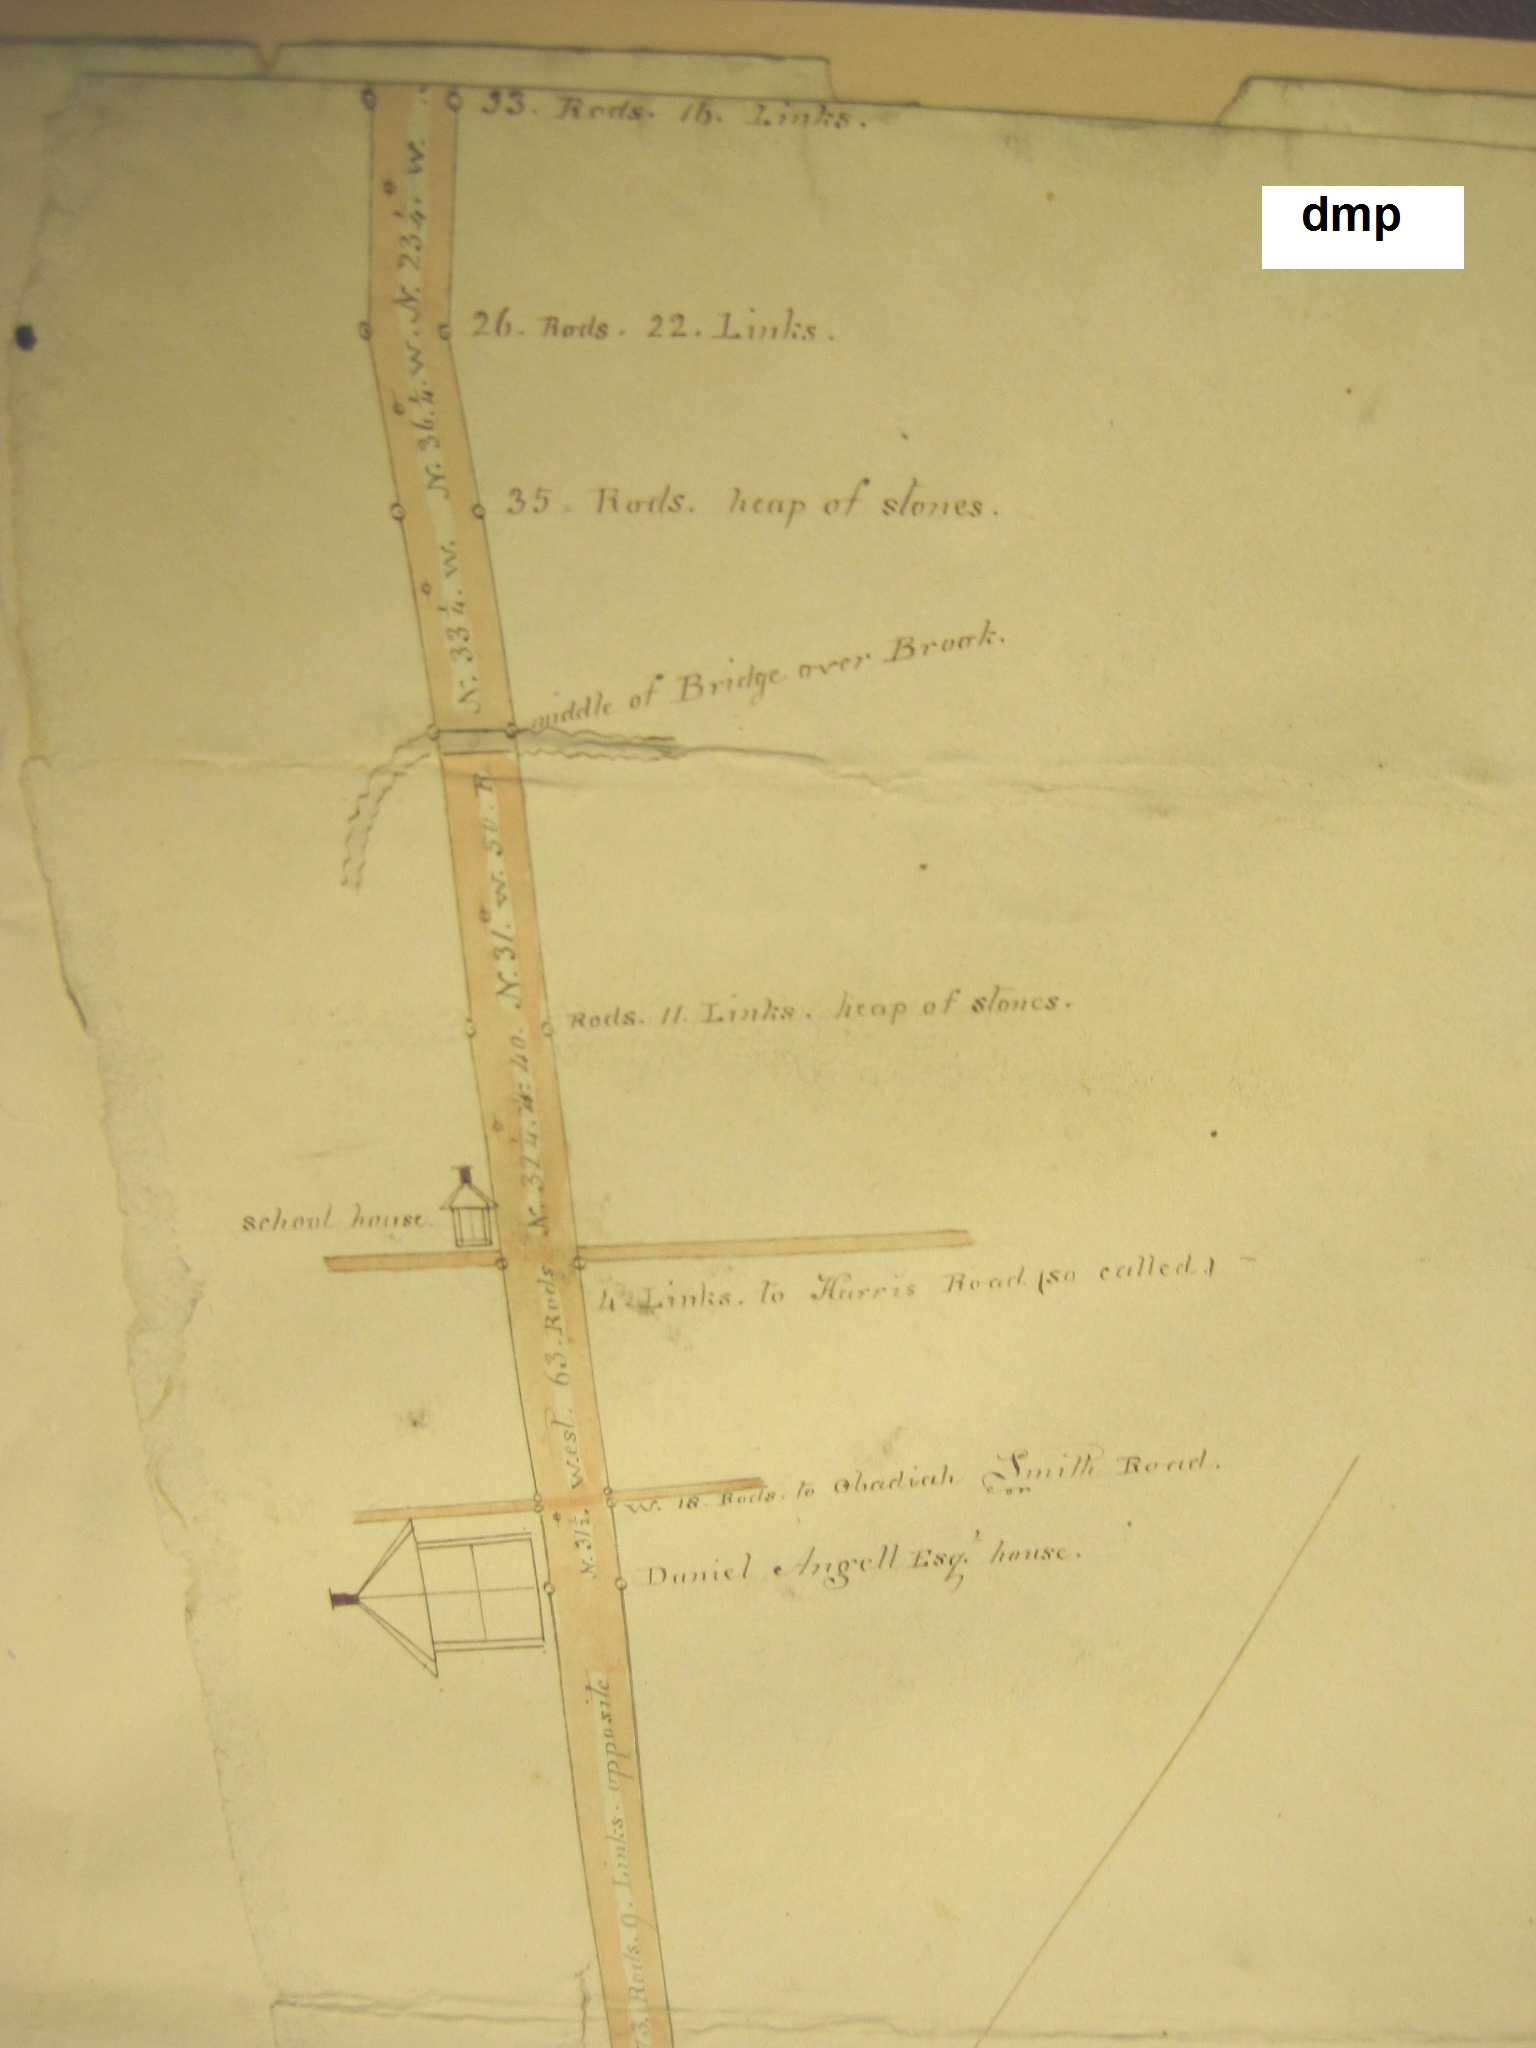 33. Rods. 16. Links.
dmp
N. 23 1/4° W.
26. Rods. 22. Links.
N. 36. 1/4°. W.
35. Rods. heap of stones.
N. 33 1/4°. W.
middle of Bridge over Brook.
N. 31°. W. 50. R
Rods. 11. Links. heap of stones.
school house.
4. Links. to Harris Road (so called)
63. Rods
N. 31 1/2°. West.
W. 18. Rods. to Obadiah Smith Road.
Daniel Angell Esq.' house.
Rods. 9. Links. opposite